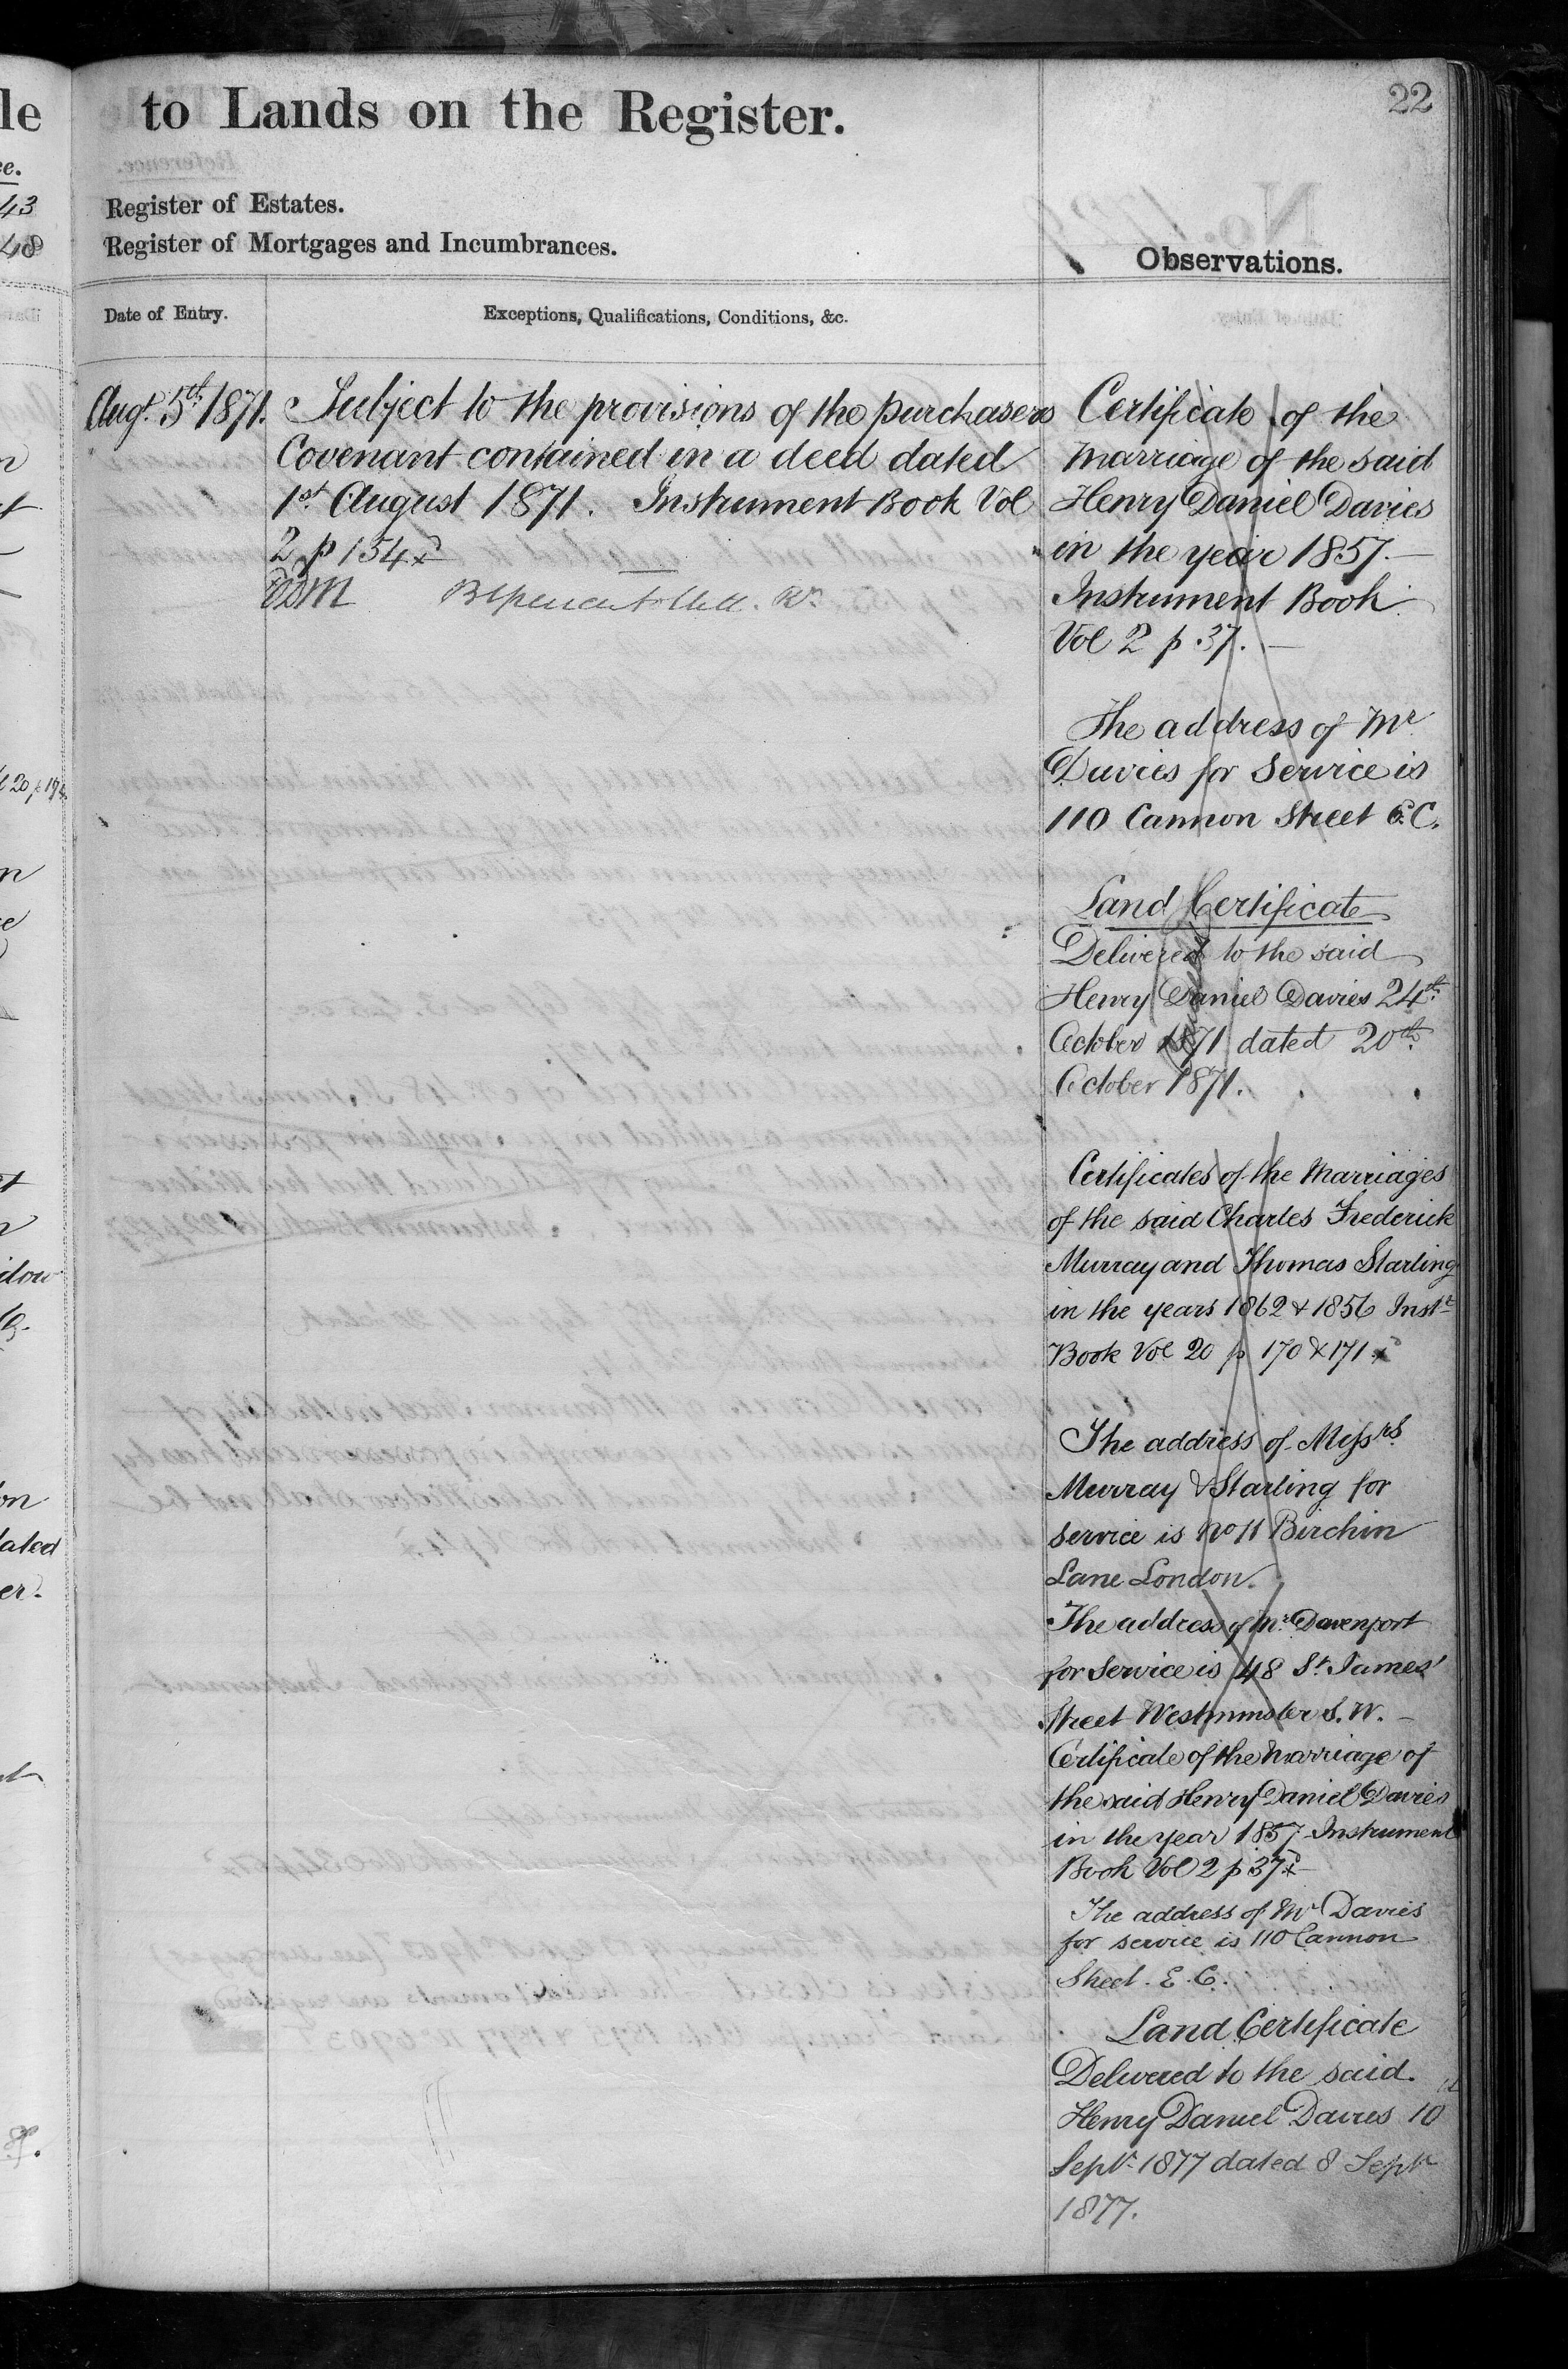 le
22
to Lands on the Register.
ce.
43
48
Register of Estates.
Register of Mortgages and Incumbrances.
Observations.
Date of Entry.
Exceptions, Qualifications, Conditions, &c.
Augt. 5th 1871.
Subject to the provisions of the purchasers
Covenant contained in a deed dated
1st August 1871. Instrument Book Vol
2 p 154
Certificate of the
Marriage of the said
Henry Daniel Davies
in the year 1857.
Instrument Book
Vol 2 p 37.
The address of Mr
Davies for Service is
110 Cannon Street E.C.
Land Certificate
Delivered to the said
Henry Daniel Davies 24th
October 1871 dated 20th
October 1871.
Certificates of the Marriages
of the said Charles Frederick
Murray and Thomas Starling
in the years 1862 & 1856 Instt
Book Vol 20 p 170 & 171
The address of Messrs
Murray & Starling for
service is No 11 Birchin
Lane London.
The address of Mr Davenport
for Service is 48 St. James'
Street Westminster S.W.
Certificate of the Marriage of
the said Henry Daniel Davies
in the year 1857 Instrument
Book Vol 2 p 37
The address of Mr Davies
for service is 110 Cannon
Street. E.C.
Land Certificate
Delivered to the said
Henry Daniel Davies 10
Septr 1877 dated 8 Septr
1877.